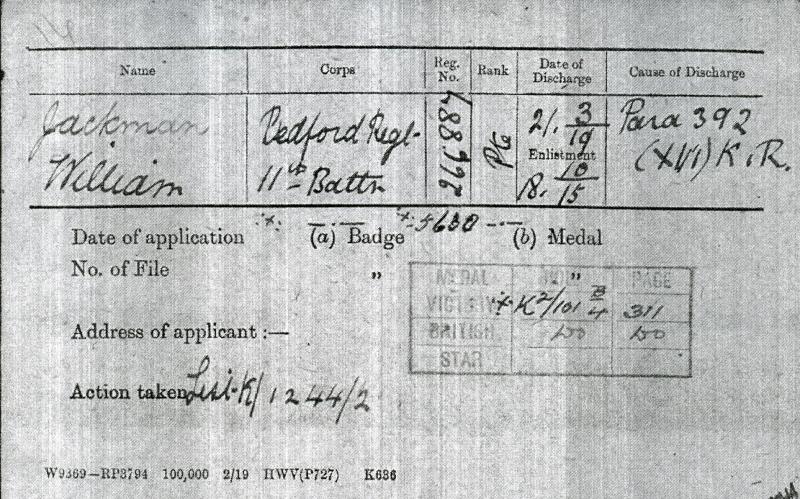 Name Corps Reg. No. Rank Date of Discharge Cause of Discharge
Jackman Bedford Regt- 266887 Pte 21.3/19 Para 392
William 11th Battn Enlistment 18.10/15 (XVI) K.R.
Date of application (a) Badge 5630 (b) Medal
No. of File "
MEDAL VOL " PAGE
VICTORY K2/101 B4 311
BRITISH do do
STAR
Address of applicant :—
Action taken List K/1244/2
W9369—RP3794 100,000 2/19 HWV(P727) K636